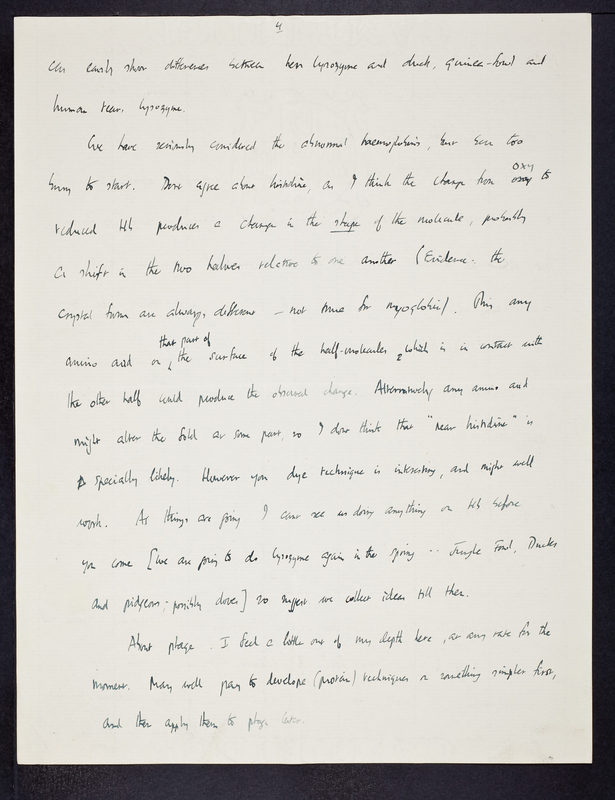 4
can easily show differences between hen lysozyme and duck, guinea-fowl and
human tears lysozyme.
We have seriously considered the abnormal haemoglobins, but been too
busy to start. Don't agree about histidine, as I think the change from oxy to
reduced Hb produces a change in the shape of the molecule, probably
a shift in the two halves relative to one another (Evidence: the
crystal forms are always different — not true for myoglobin). Thus any
amino acid on that part of the surface of the half-molecules, which is in contact with
the other half could produce the observed change. Alternatively any amino acid
might alter the fold at some part, so I don't think that "near histidine" is
specially likely. However your dye technique is interesting, and might well
work. As things are going I can't see us doing anything on Hb before
you come [We are going to do lysozyme again in the spring -- Jungle Fowl, Ducks
and pidgeons; possibly doves] so suggest we collect ideas till then.
About phage. I feel a little out of my depth here, at any rate for the
moment. May well pay to develope (protein) techniques on something simpler first,
and then apply them to phage later.